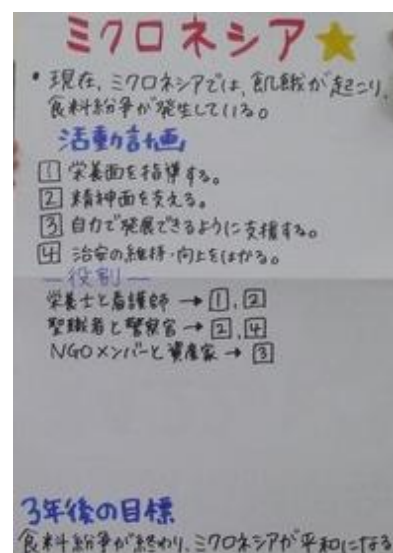 ミクロネシア
・現在、ミクロネシアでは、飢餓が起こり、
食料紛争が発生している。
活動計画
1 栄養面を指導する。
2 精神面を支える。
3 自力で発展できるように支援する。
4 治安の維持・向上をはかる。
―役割―
栄養士と看護師 → 1, 2
聖職者と警察官 → 2, 4
NGOメンバーと資産家 → 3
3年後の目標
食料紛争が終わり、ミクロネシアが平和になる